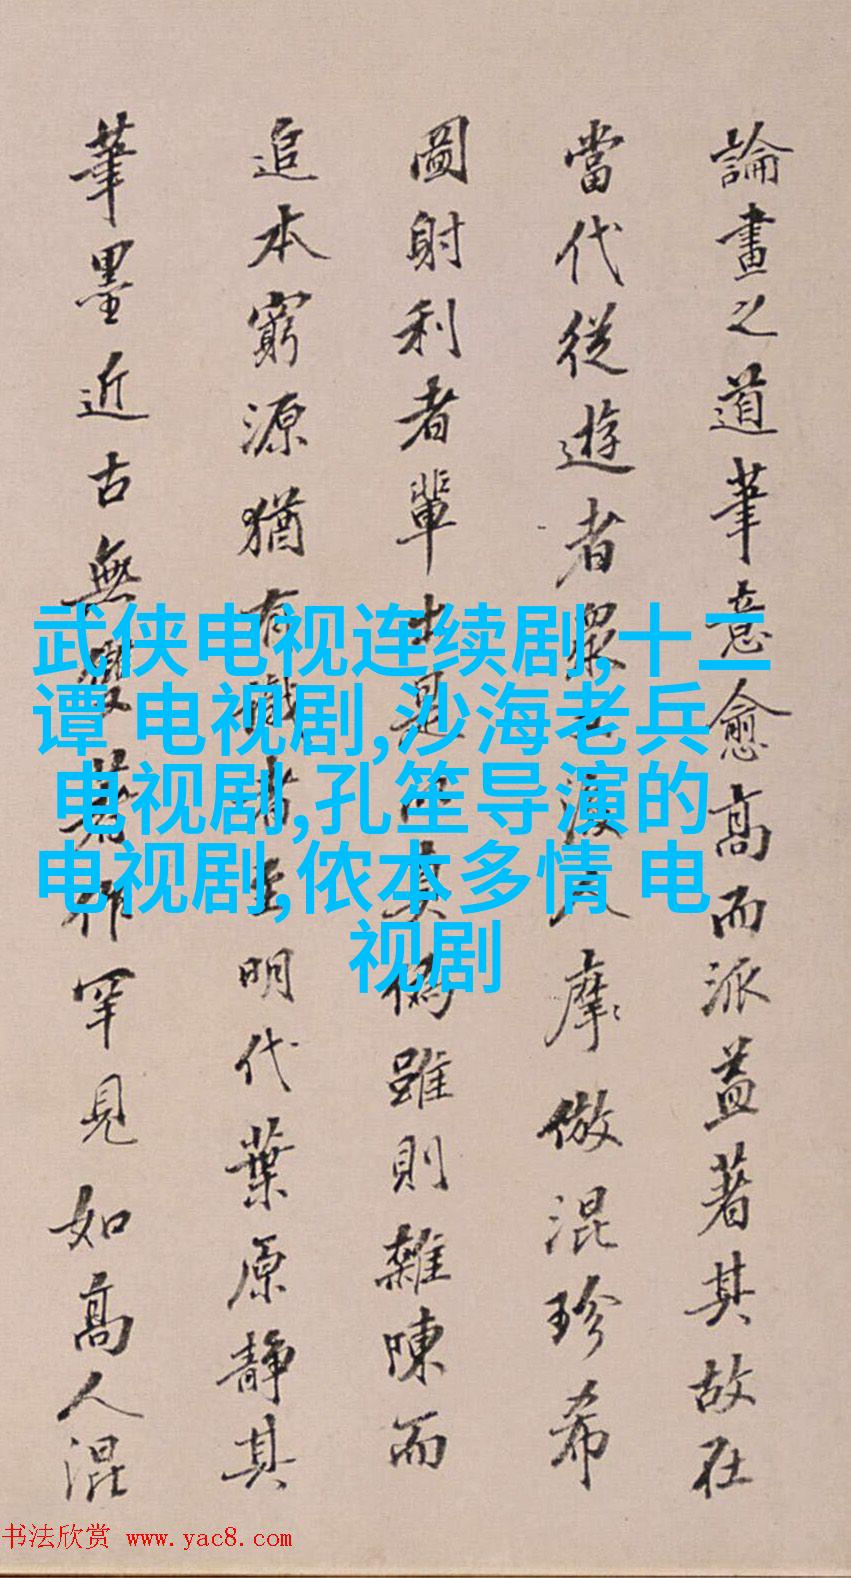 論畫之道筆意愈高而派益著其故在
當代從遊者眾後人摩倣混珍希
圖射利者輩出是以真偽雖則雜陳而
追本窮源猶有識者至明代葉原靜其
筆墨近古無雙著作罕見如高人混
武侠电视连续剧,十二
谭 电视剧,沙海老兵
电视剧,孔笙导演的
电视剧,侬本多情 电
视剧
书法欣赏 www.yac8.com